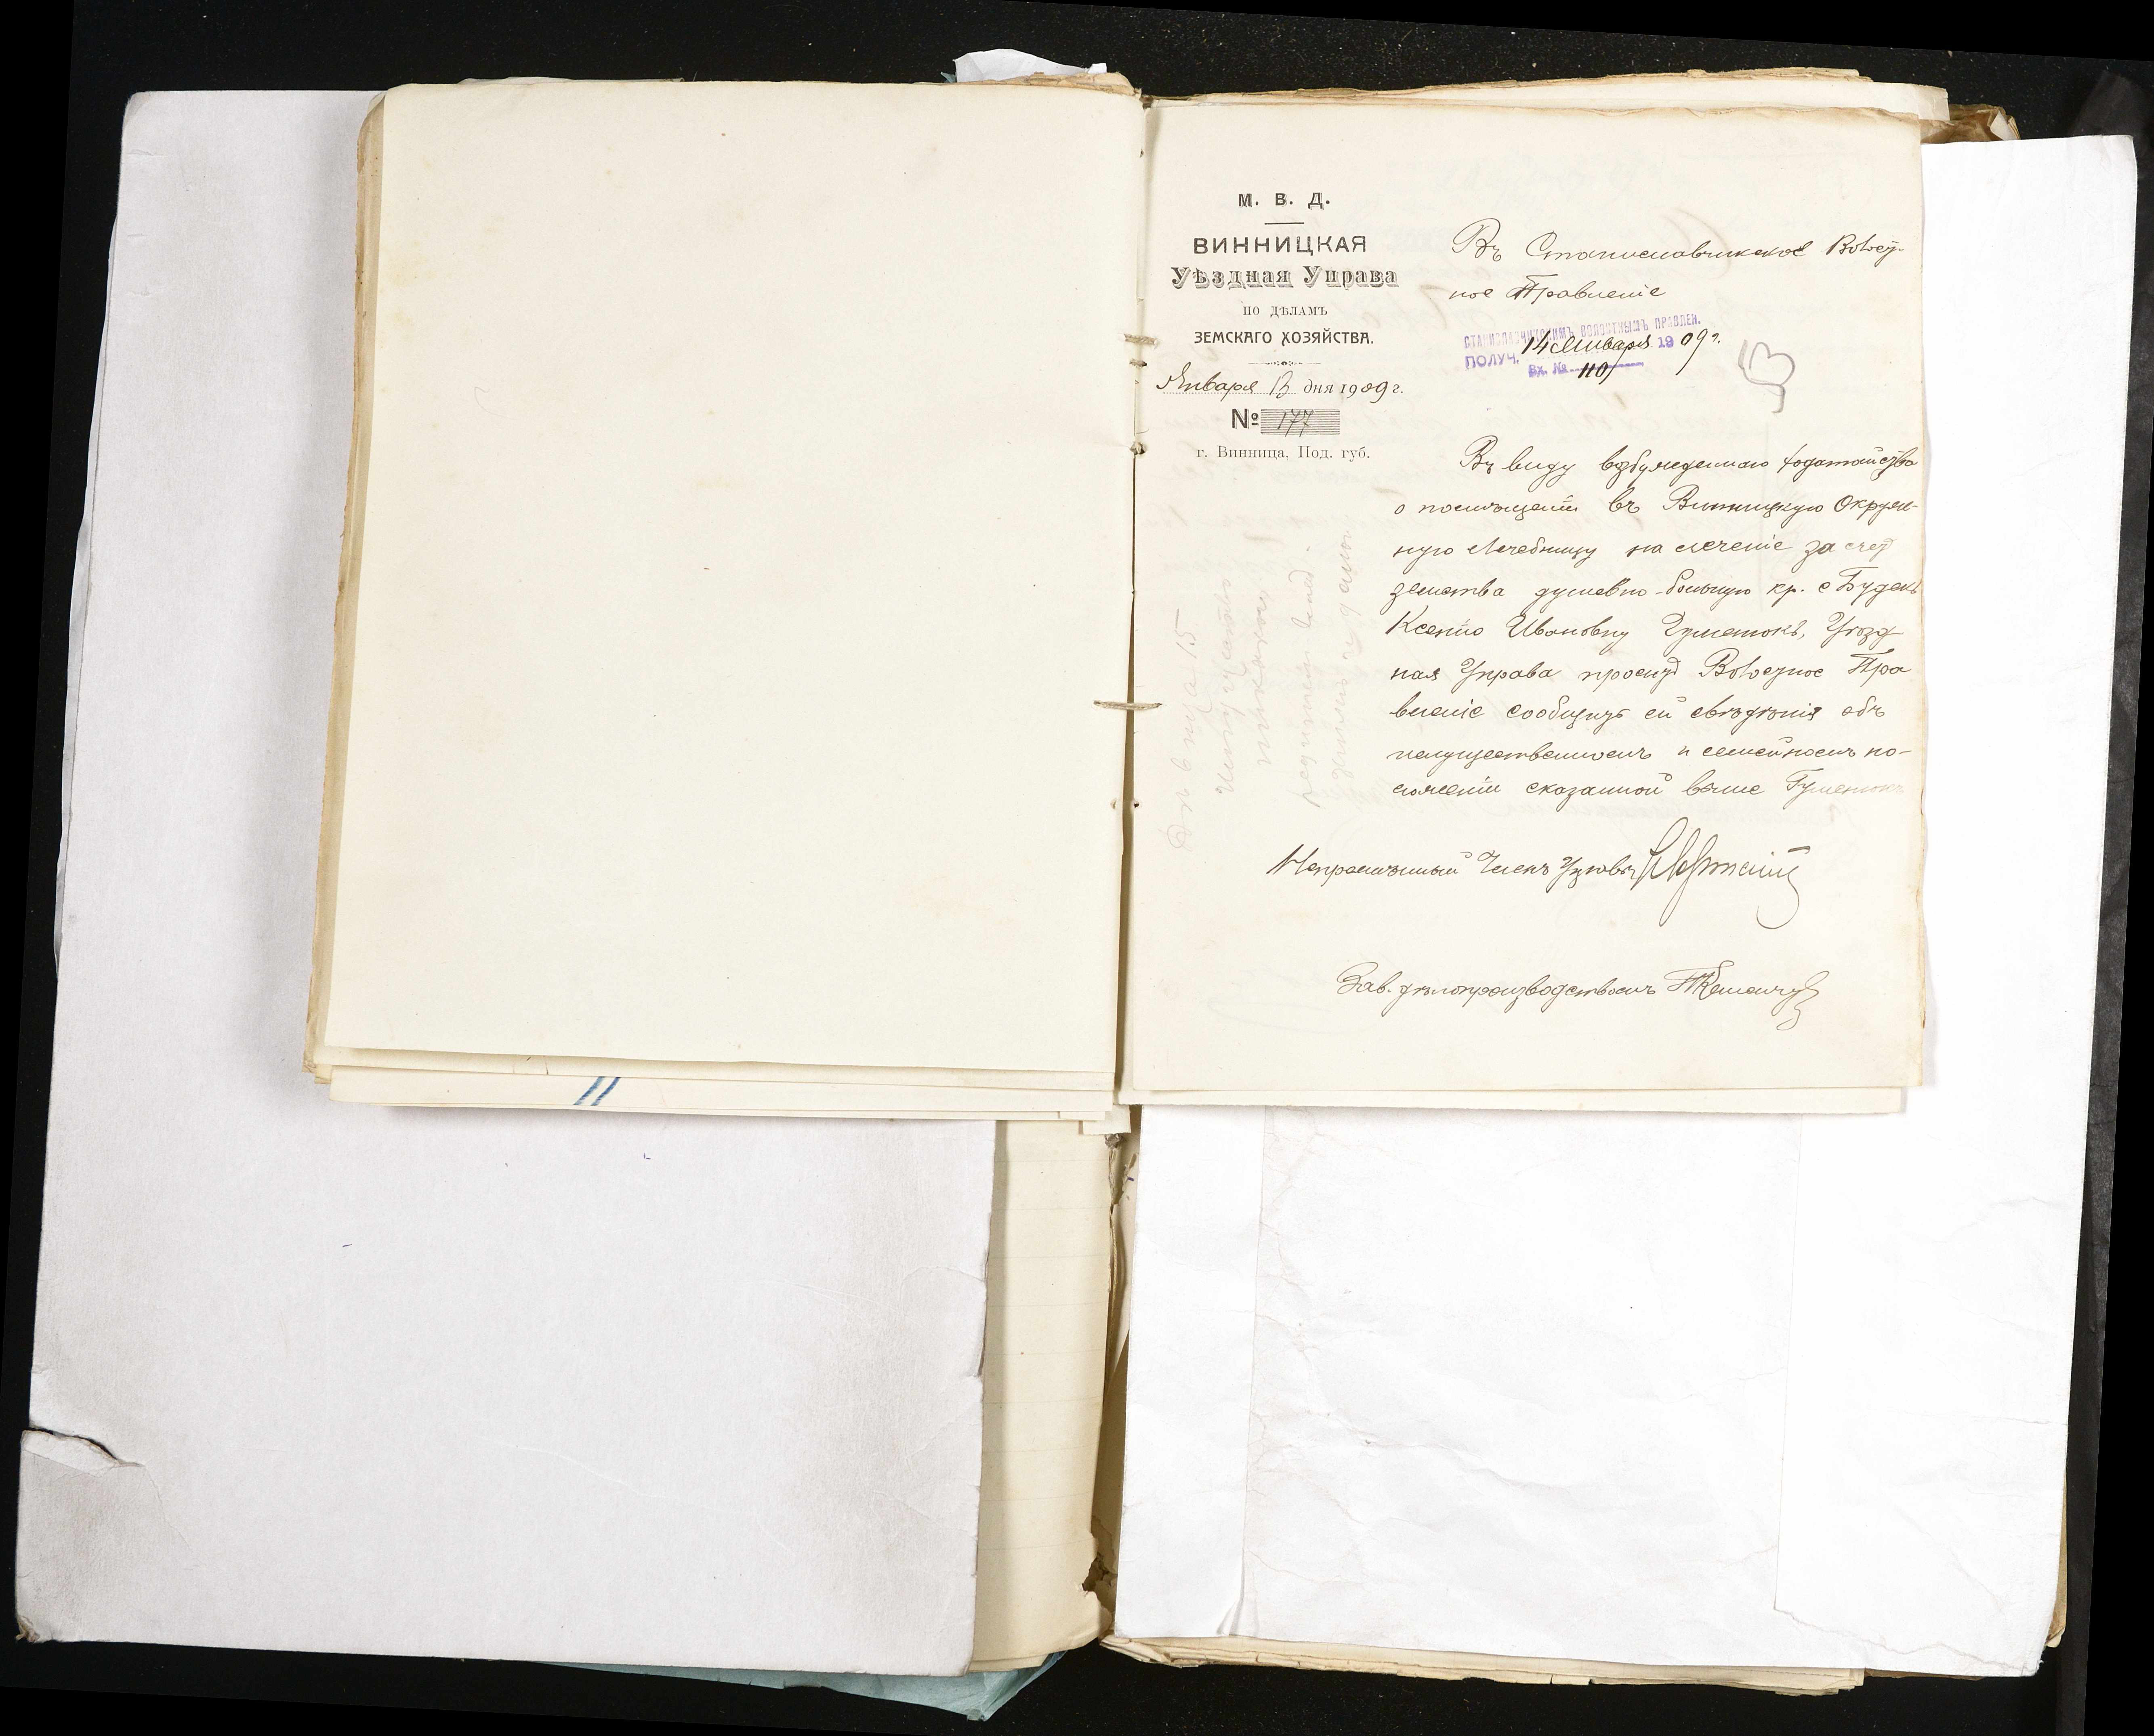 М. В. Д.
ВИННИЦКАЯ
Уѣздная Управа
ПО ДѢЛАМЪ
ЗЕМСКАГО ХОЗЯЙСТВА.
Января 13 дня 1909 г.
№ 177
г. Винница, Под. губ.
Въ Станиславчикское Волост-
ное Правленіе
СТАНИСЛАВЧИКСКИМЪ ВОЛОСТНЫМЪ ПРАВЛЕН.
ПОЛУЧ. 14 Января 1909 г.
Вх. № 110
53
Въ виду возбужденнаго ходатайства
о помѣщеніи въ Винницкую Окруж-
ную Лечебницу на леченіе за счет
земства душевно-больную кр. с Будекъ
Ксенію Ивановну Гуменюкъ, Уѣзд
ная Управа просит Волостное Пра
вленіе сообщить ей свѣдѣнія объ
имущественномъ и семейномъ по-
ложеніи сказанной выше Гуменюкъ
Непремѣнный Членъ Управы
Зав. дѣлопроизводствомъ